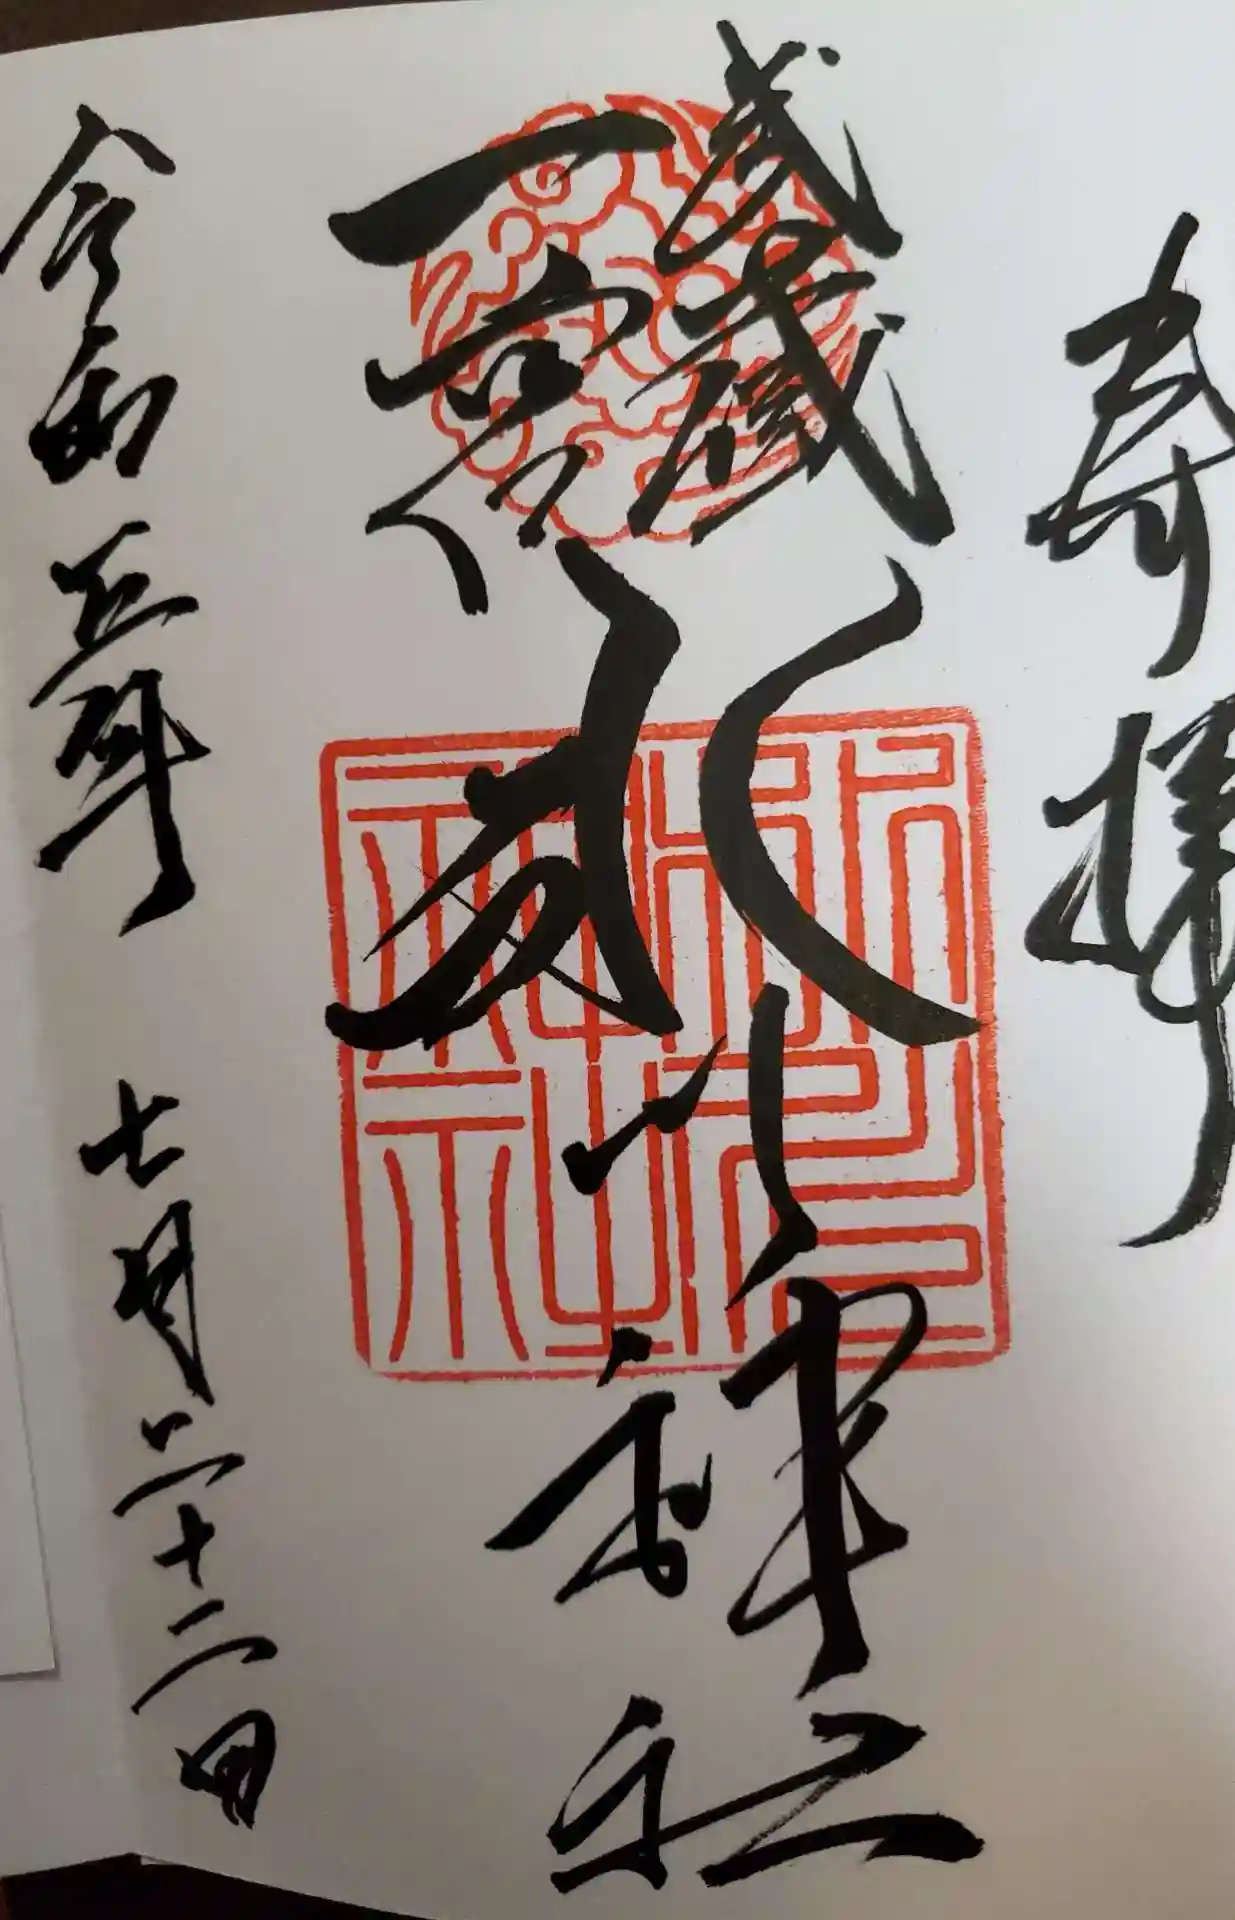 奉拝
武蔵
一宮
氷川神社
令和五年 七月二十二日